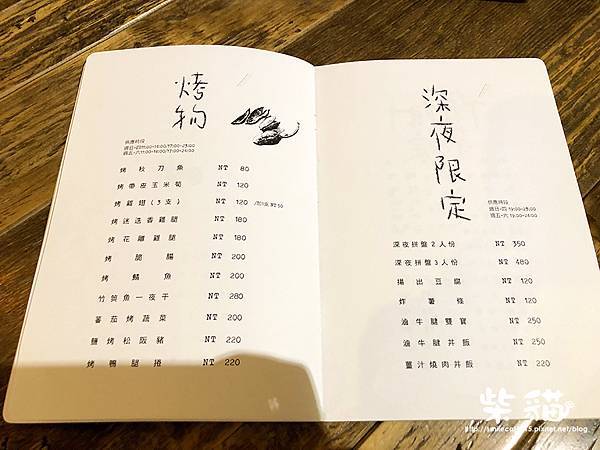 烤物
供應時段
烤秋刀魚 NT 80
烤帶皮玉米筍 NT 120
烤雞翅(3支) NT 120
烤迷迭香雞腿 NT 180
烤花雕雞腿 NT 180
烤肥腸 NT 200
烤鯖魚 NT 200
竹筴魚一夜干 NT 280
蕃茄烤蔬菜 NT 200
鹽烤松阪豬 NT 220
烤鴨腿捲 NT 220
深夜限定
供應時段
週日-四 19:00-23:00
週五-六 19:00-24:00
深夜拼盤2人份 NT 350
深夜拼盤3人份 NT 480
揚出豆腐 NT 120
炸薯條 NT 120
滷牛腱雙寶 NT 250
滷牛腱丼飯 NT 250
薑汁燒肉丼飯 NT 220
柴貓